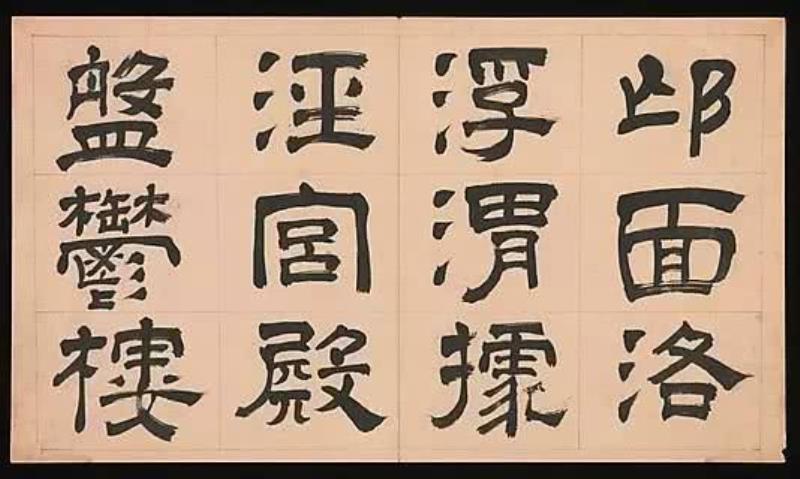 邙面洛
浮渭據
涇宮殿
盤鬱樓